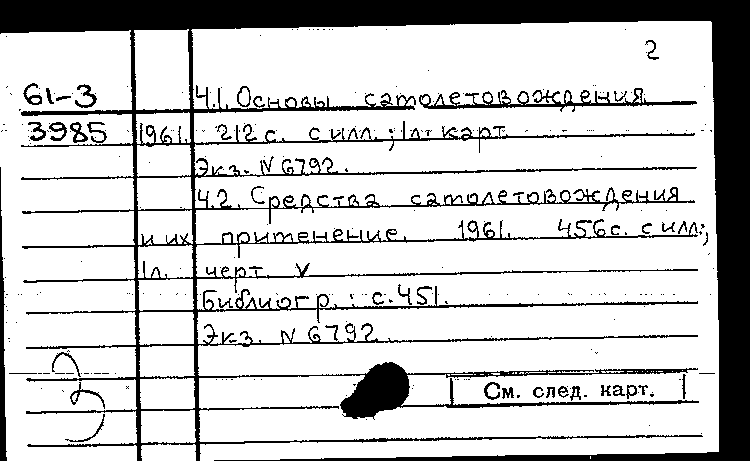 2
61-3 Ч.1. Основы самолетовождения.
3985 1961. 212 с. с илл.; 1л. карт.
Экз. N 6792.
Ч.2. Средства самолетовождения
и их применение. 1961. 456 с. с илл.;
1л. черт. V
Библиогр.: с. 451.
Экз. N 6792.
3
См. след. карт.